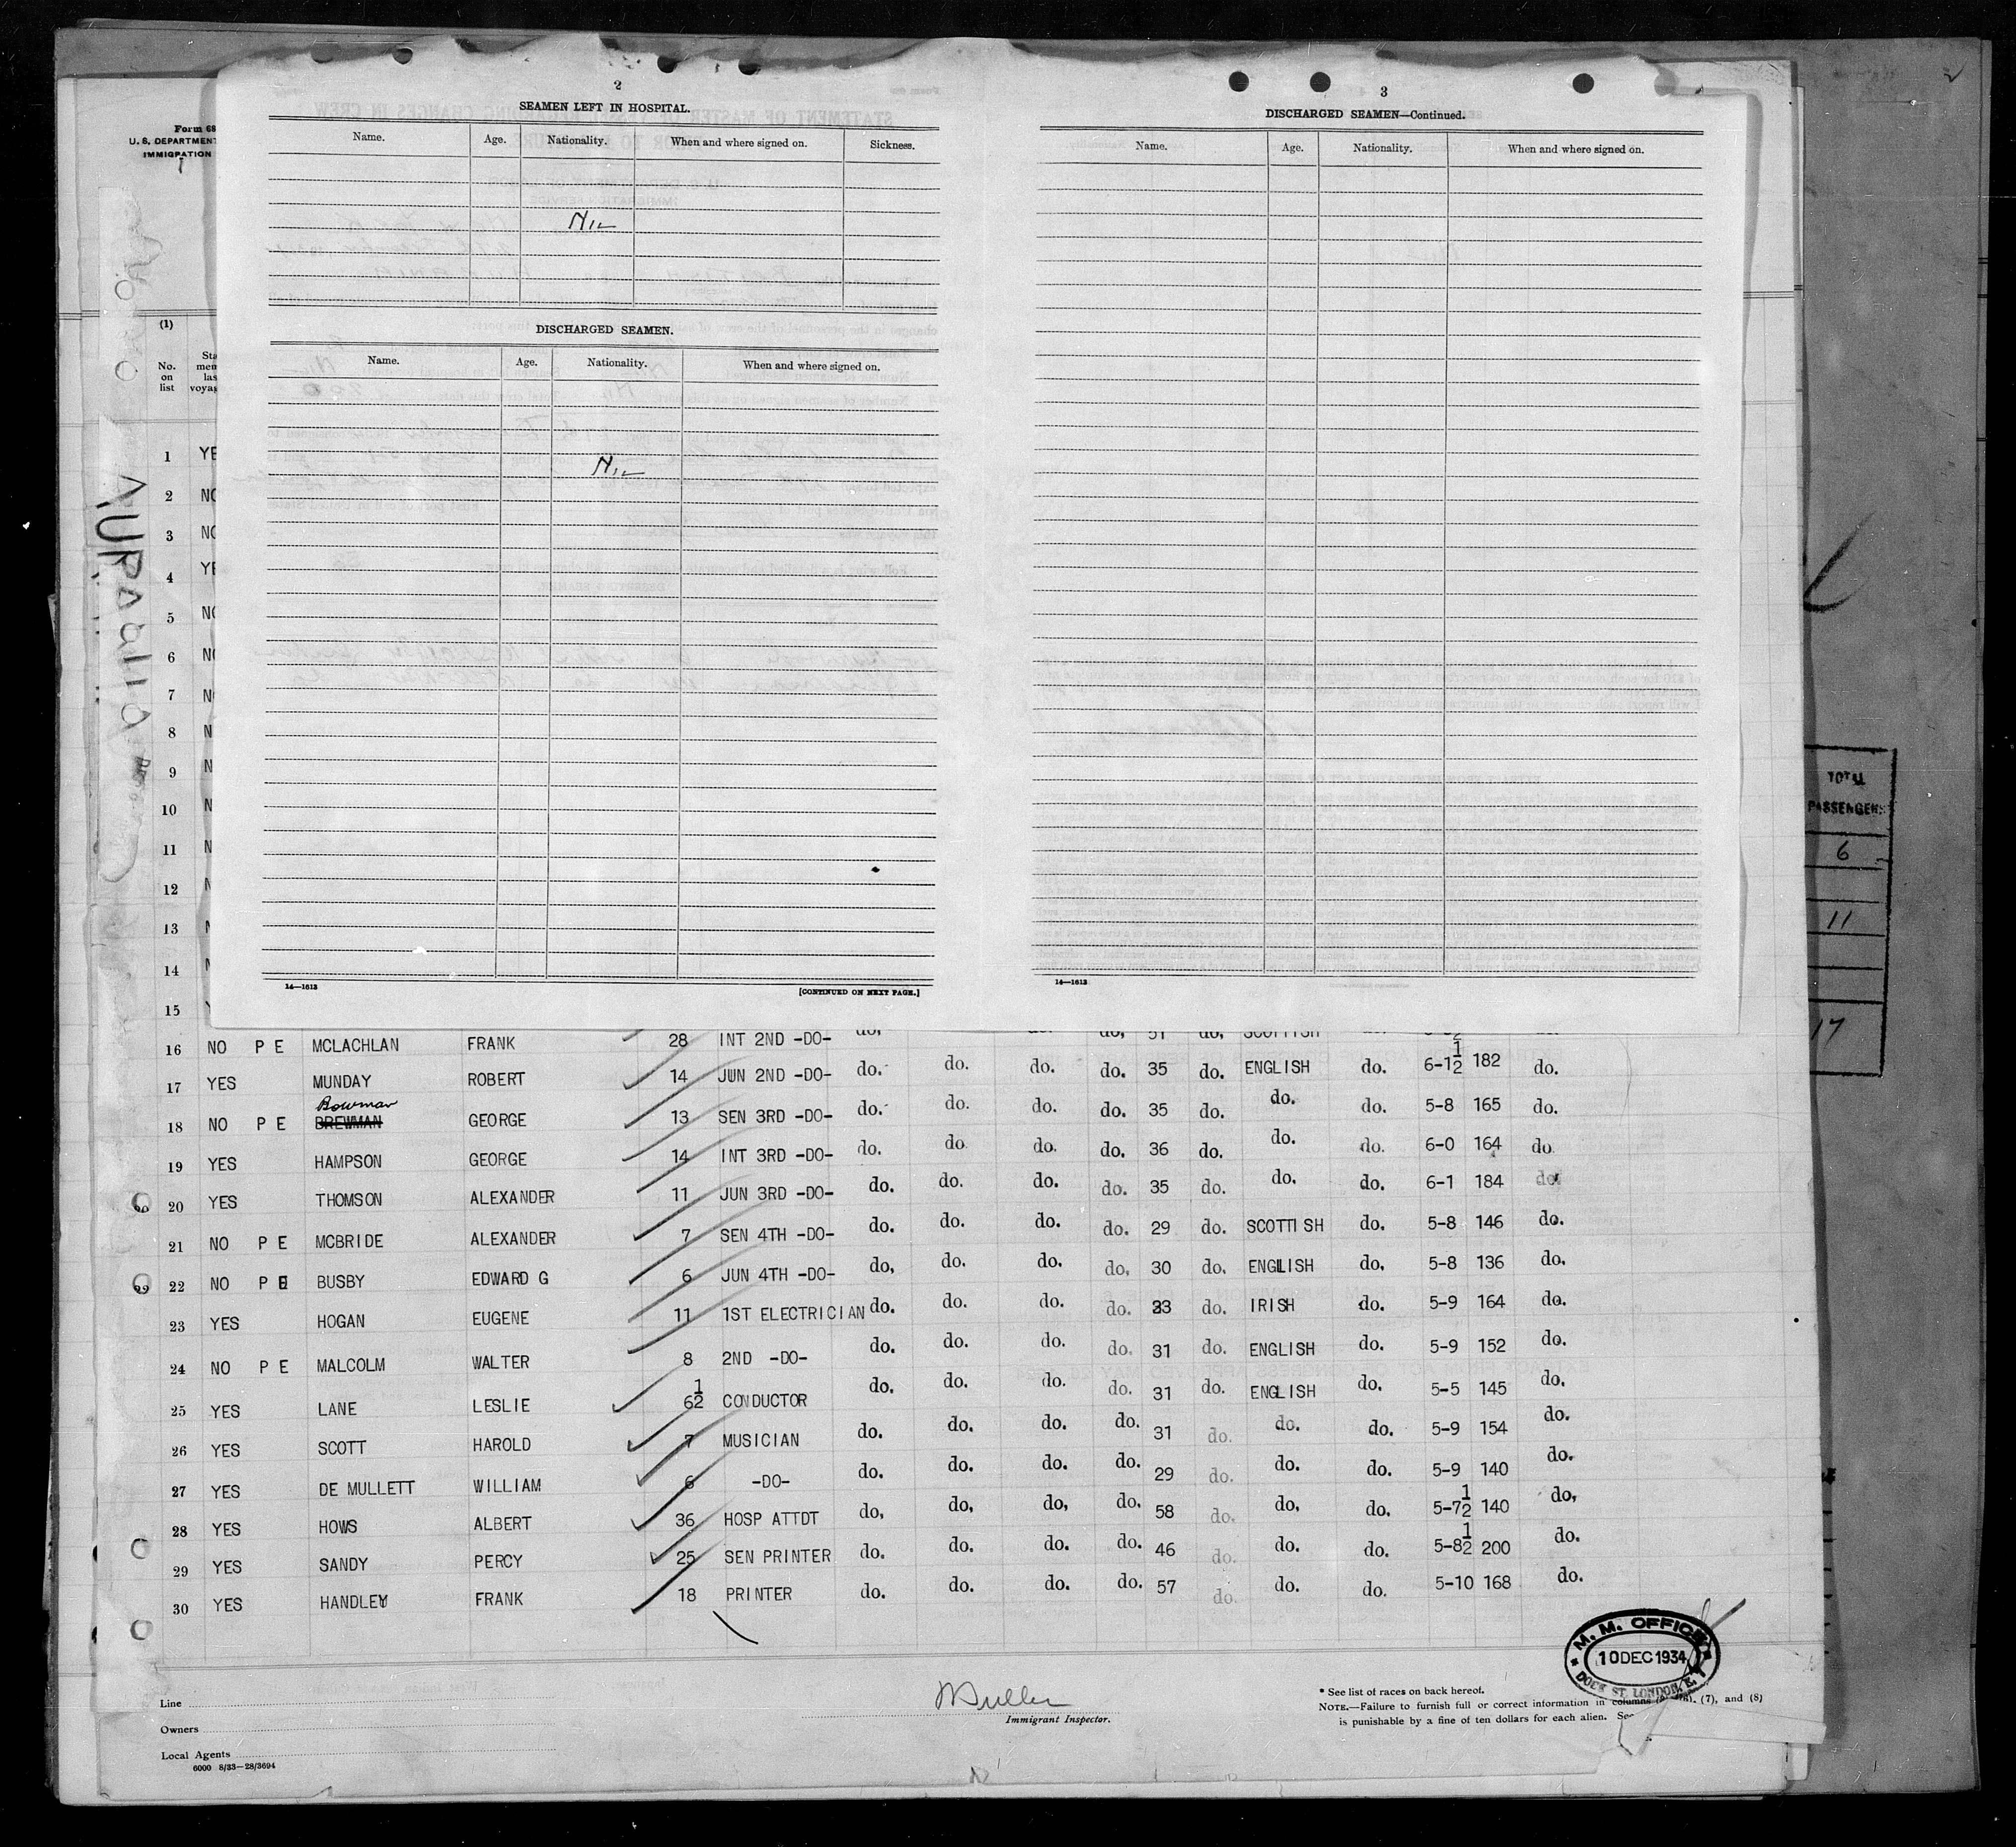 2
SEAMEN LEFT IN HOSPITAL.
Name. Age. Nationality. When and where signed on. Sickness.
Nil
DISCHARGED SEAMEN.
Name. Age. Nationality. When and where signed on.
Nil
14—1613
[CONTINUED ON NEXT PAGE.]
3
DISCHARGED SEAMEN—Continued.
Name. Age. Nationality. When and where signed on.
14—1613
Form 68
U. S. DEPARTMENT
IMMIGRATION
AURANIA
(1)
No. on list
1 YE
2 NO
3 NO
4 YE
5 NO
6 NO
7 NO
8 N
9 N
10 N
11 N
12 N
13 N
14 N
15 Y
16 NO P E MCLACHLAN FRANK 28 INT 2ND -DO- do. do. 51 do. SCOTTISH
17 YES MUNDAY ROBERT 14 JUN 2ND -DO- do. do. do. do. 35 do. ENGLISH do. 6-1½ 182 do.
Bowman
18 NO P E BREWMAN GEORGE 13 SEN 3RD -DO- do. do. do. do. 35 do. do. do. 5-8 165 do.
19 YES HAMPSON GEORGE 14 INT 3RD -DO- do. do do. do. 36 do. do. do. 6-0 164 do
20 YES THOMSON ALEXANDER 11 JUN 3RD -DO- do. do. do. do. 35 do. do. do. 6-1 184 do.
21 NO P E MCBRIDE ALEXANDER 7 SEN 4TH -DO- do. do. do. do. 29 do. SCOTTISH do. 5-8 146 do.
22 NO P E BUSBY EDWARD G 6 JUN 4TH -DO- do, do. do. do, 30 do. ENGLISH do. 5-8 136 do.
23 YES HOGAN EUGENE 11 1ST ELECTRICIAN do. do. do. do. 33 do. IRISH do. 5-9 164 do.
24 NO P E MALCOLM WALTER 8 2ND -DO- do. do. do. do. 31 do. ENGLISH do. 5-9 152 do.
25 YES LANE LESLIE 6½ CONDUCTOR do. do. do. do. 31 do. ENGLISH do. 5-5 145 do.
26 YES SCOTT HAROLD 7 MUSICIAN do. do. do. do. 31 do. do. do. 5-9 154 do.
27 YES DE MULLETT WILLIAM 6 -DO- do. do. do. do. 29 do. do. do. 5-9 140 do.
28 YES HOWS ALBERT 36 HOSP ATTDT do, do, do, do. 58 do. do, do. 5-7½ 140 do,
29 YES SANDY PERCY 25 SEN PRINTER do. do. do. do. 46 do. do. do. 5-8½ 200 do.
30 YES HANDLEY FRANK 18 PRINTER do. do. do. do. 57 do. do. do. 5-10 168 do.
TOTAL
PASSENGERS
6
11
17
M. M. OFFICE
10 DEC 1934
DOCK ST. LONDON, E.1
Line
Owners
Local Agents
6000 8/33—28/3694
Immigrant Inspector.
* See list of races on back hereof.
NOTE.—Failure to furnish full or correct information in columns (6), (7), and (8)
is punishable by a fine of ten dollars for each alien. See